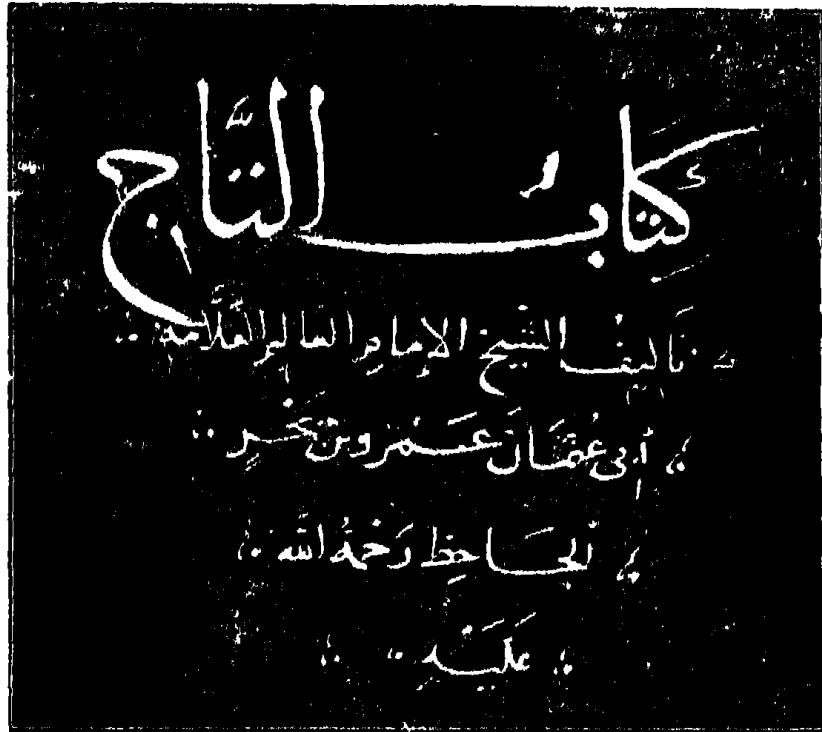 كتابُ التَّاج
تَأليف الشيخ الإمامِ العالمِ العَلَّامة
أبى عُثمَانَ عَمْرو بن بَحْرٍ
الجَاحِظِ رَحْمَةُ الله
عَلَيْهِ